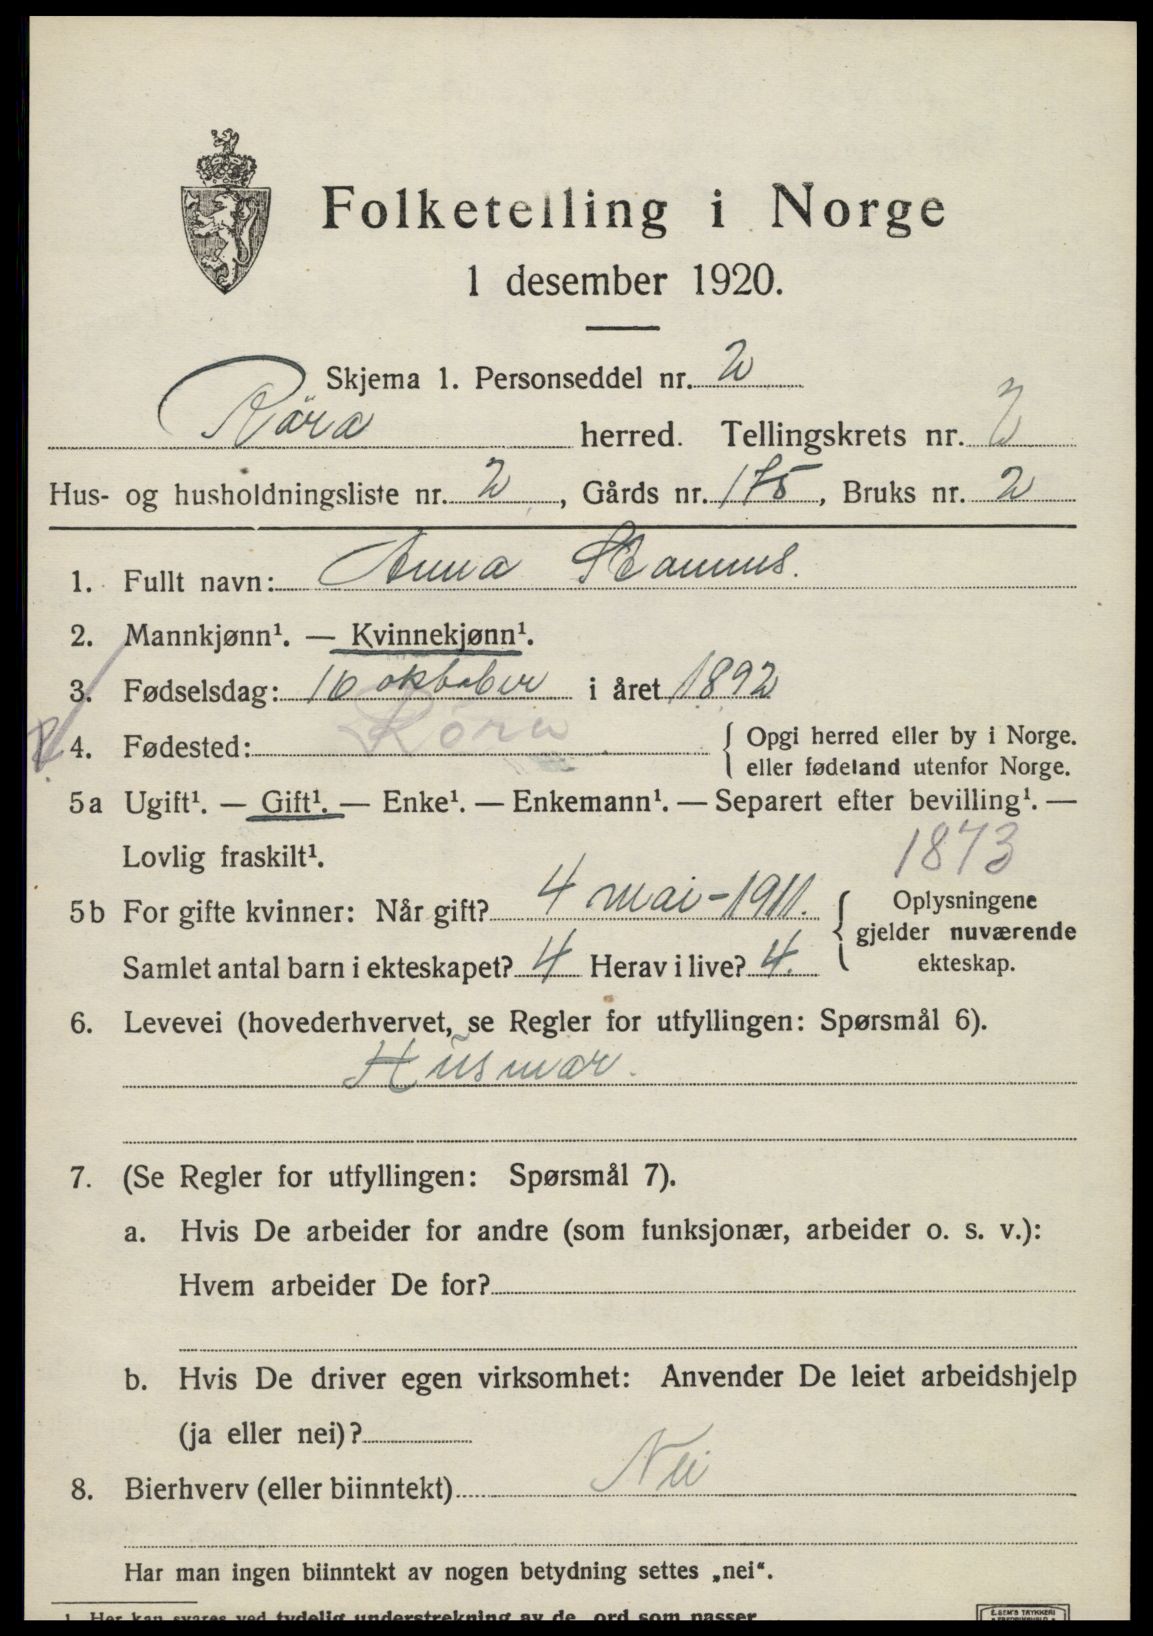 Folketelling i Norge
1 desember 1920.
Skjema 1. Personseddel nr. 2
Röra herred. Tellingskrets nr. 2
Hus- og husholdningsliste nr. 2, Gårds nr. 175, Bruks nr. 2
1. Fullt navn: Anna Hamnes.
2. Mannkjønn¹. — Kvinnekjønn¹.
3. Fødselsdag: 16 oktober i året 1892
4. Fødested: Röra { Opgi herred eller by i Norge.
eller fødeland utenfor Norge.
5a Ugift¹. — Gift¹. — Enke¹. — Enkemann¹. — Separert efter bevilling¹. —
Lovlig fraskilt¹. 1873
5b For gifte kvinner: Når gift? 4 mai - 1911. { Oplysningene
gjelder nuværende
Samlet antal barn i ekteskapet? 4 Herav i live? 4. ekteskap.
6. Levevei (hovederhvervet, se Regler for utfyllingen: Spørsmål 6).
Husmor.
7. (Se Regler for utfyllingen: Spørsmål 7).
a. Hvis De arbeider for andre (som funksjonær, arbeider o. s. v.):
Hvem arbeider De for?
b. Hvis De driver egen virksomhet: Anvender De leiet arbeidshjelp
(ja eller nei)?
8. Bierhverv (eller biinntekt) Nei
Har man ingen biinntekt av nogen betydning settes „nei“.
1 Her kan svares ved tydelig understrekning av de ord som passer
E. SEM'S TRYKKERI
FREDRIKSHALD